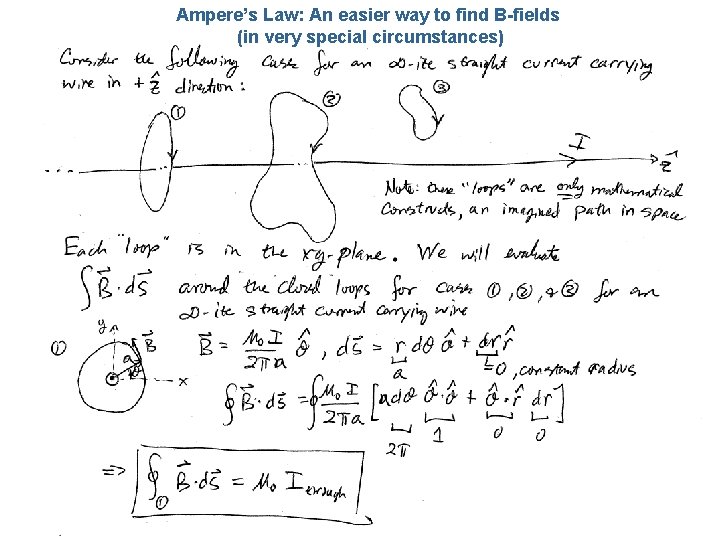 Ampere's Law: An easier way to find B-fields
(in very special circumstances)
Consider the following cases for an ∞-ite straight current carrying
wire in + ẑ direction:
① ② ③
I
... ẑ
Note: these "loops" are only mathematical
constructs, an imagined path in space
Each "loop" is in the xy-plane. We will evaluate
∫B⃗·ds⃗ around the closed loops for cases ①, ②, + ③ for an
∞-ite straight current carrying wire
① y B⃗ a θ x B⃗ = μ₀I/2πa θ̂, ds⃗ = r dθ θ̂ + dr r̂
a =0, constant radius
∮B⃗·ds⃗ = ∮ μ₀I/2πa [a dθ θ̂·θ̂ + θ̂·r̂ dr]
2π 1 0 0
⇒ ∮① B⃗·ds⃗ = μ₀ I through